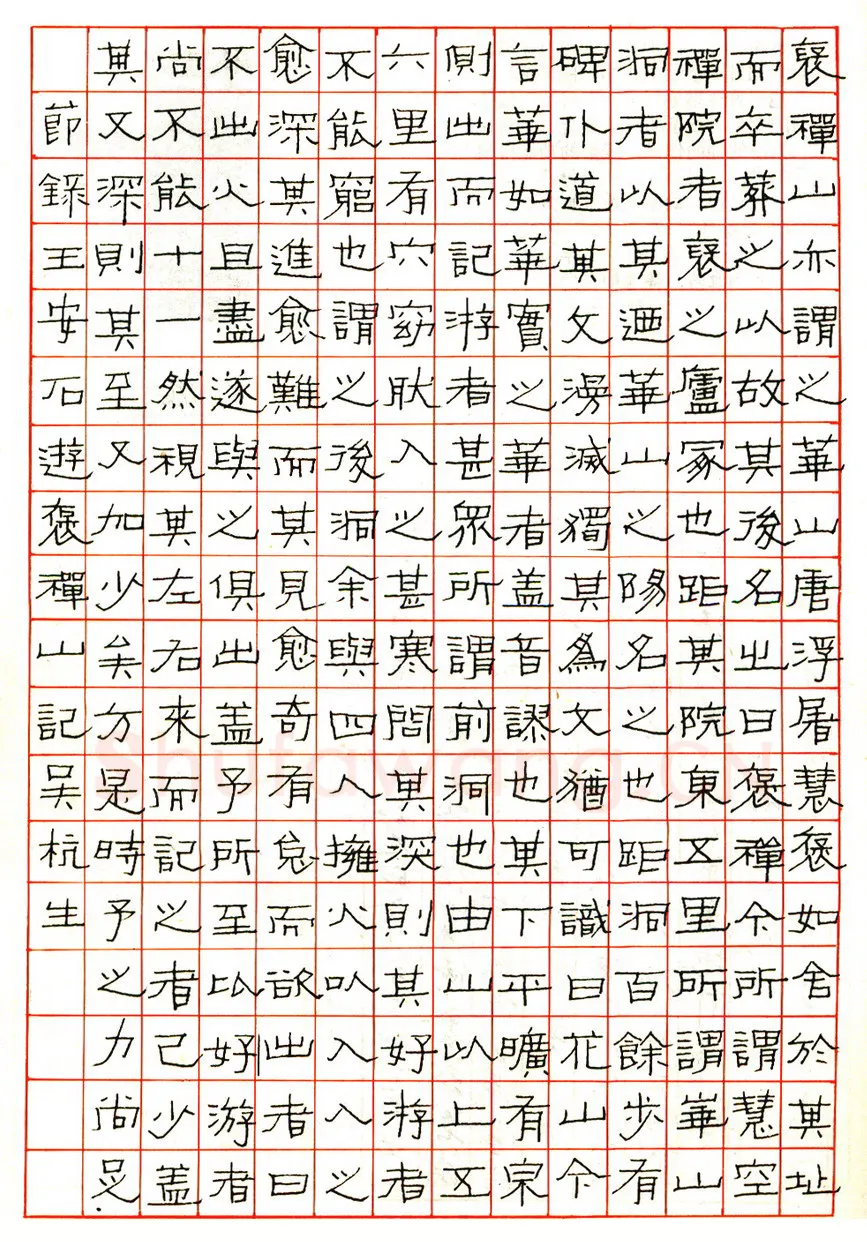 褒禪山亦謂之華山唐浮屠慧褒如舍於其址
而卒葬之以故其後名之曰褒禪今所謂慧空
禪院者褒之廬冢也距其院東五里所謂華山
洞者以其迺華山之陽名之也距洞百餘步有
碑仆道其文漫滅獨其為文猶可識曰花山今
言華如華實之華者盖音謬也其下平曠有泉
側出而記游者甚眾所謂前洞也由山以上五
六里有穴窈肰入之甚寒問其深則其好游者
不能窮也謂之後洞余與四人擁火以入入之
愈深其進愈難而其見愈奇有怠而欲出者曰
不出火且盡遂與之俱出盖予所至比好游者
尚不能十一然視其左右來而記之者已少盖
其又深則其至又加少矣方是時予之力尚足
節錄王安石遊褒禪山記吳杭生
Shufawang.CN